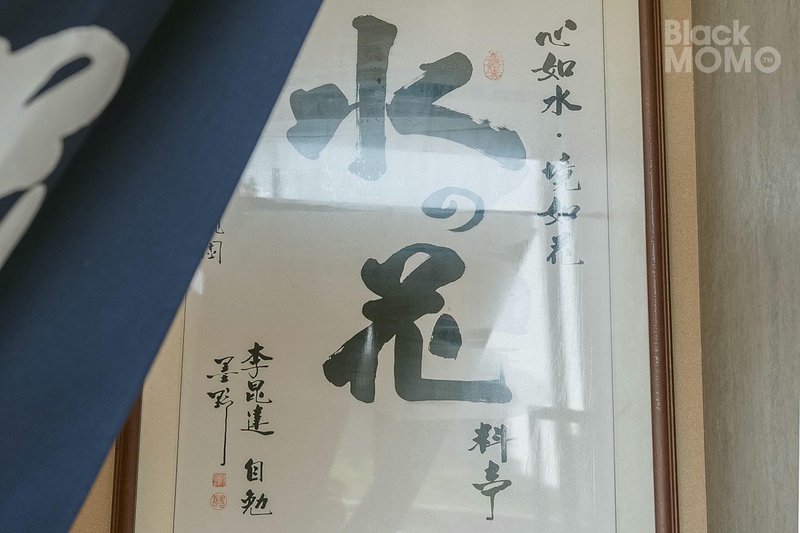 心如水·境如花
水の花
料亭
李昆建 自勉
墨野
Black
MOMO
TM